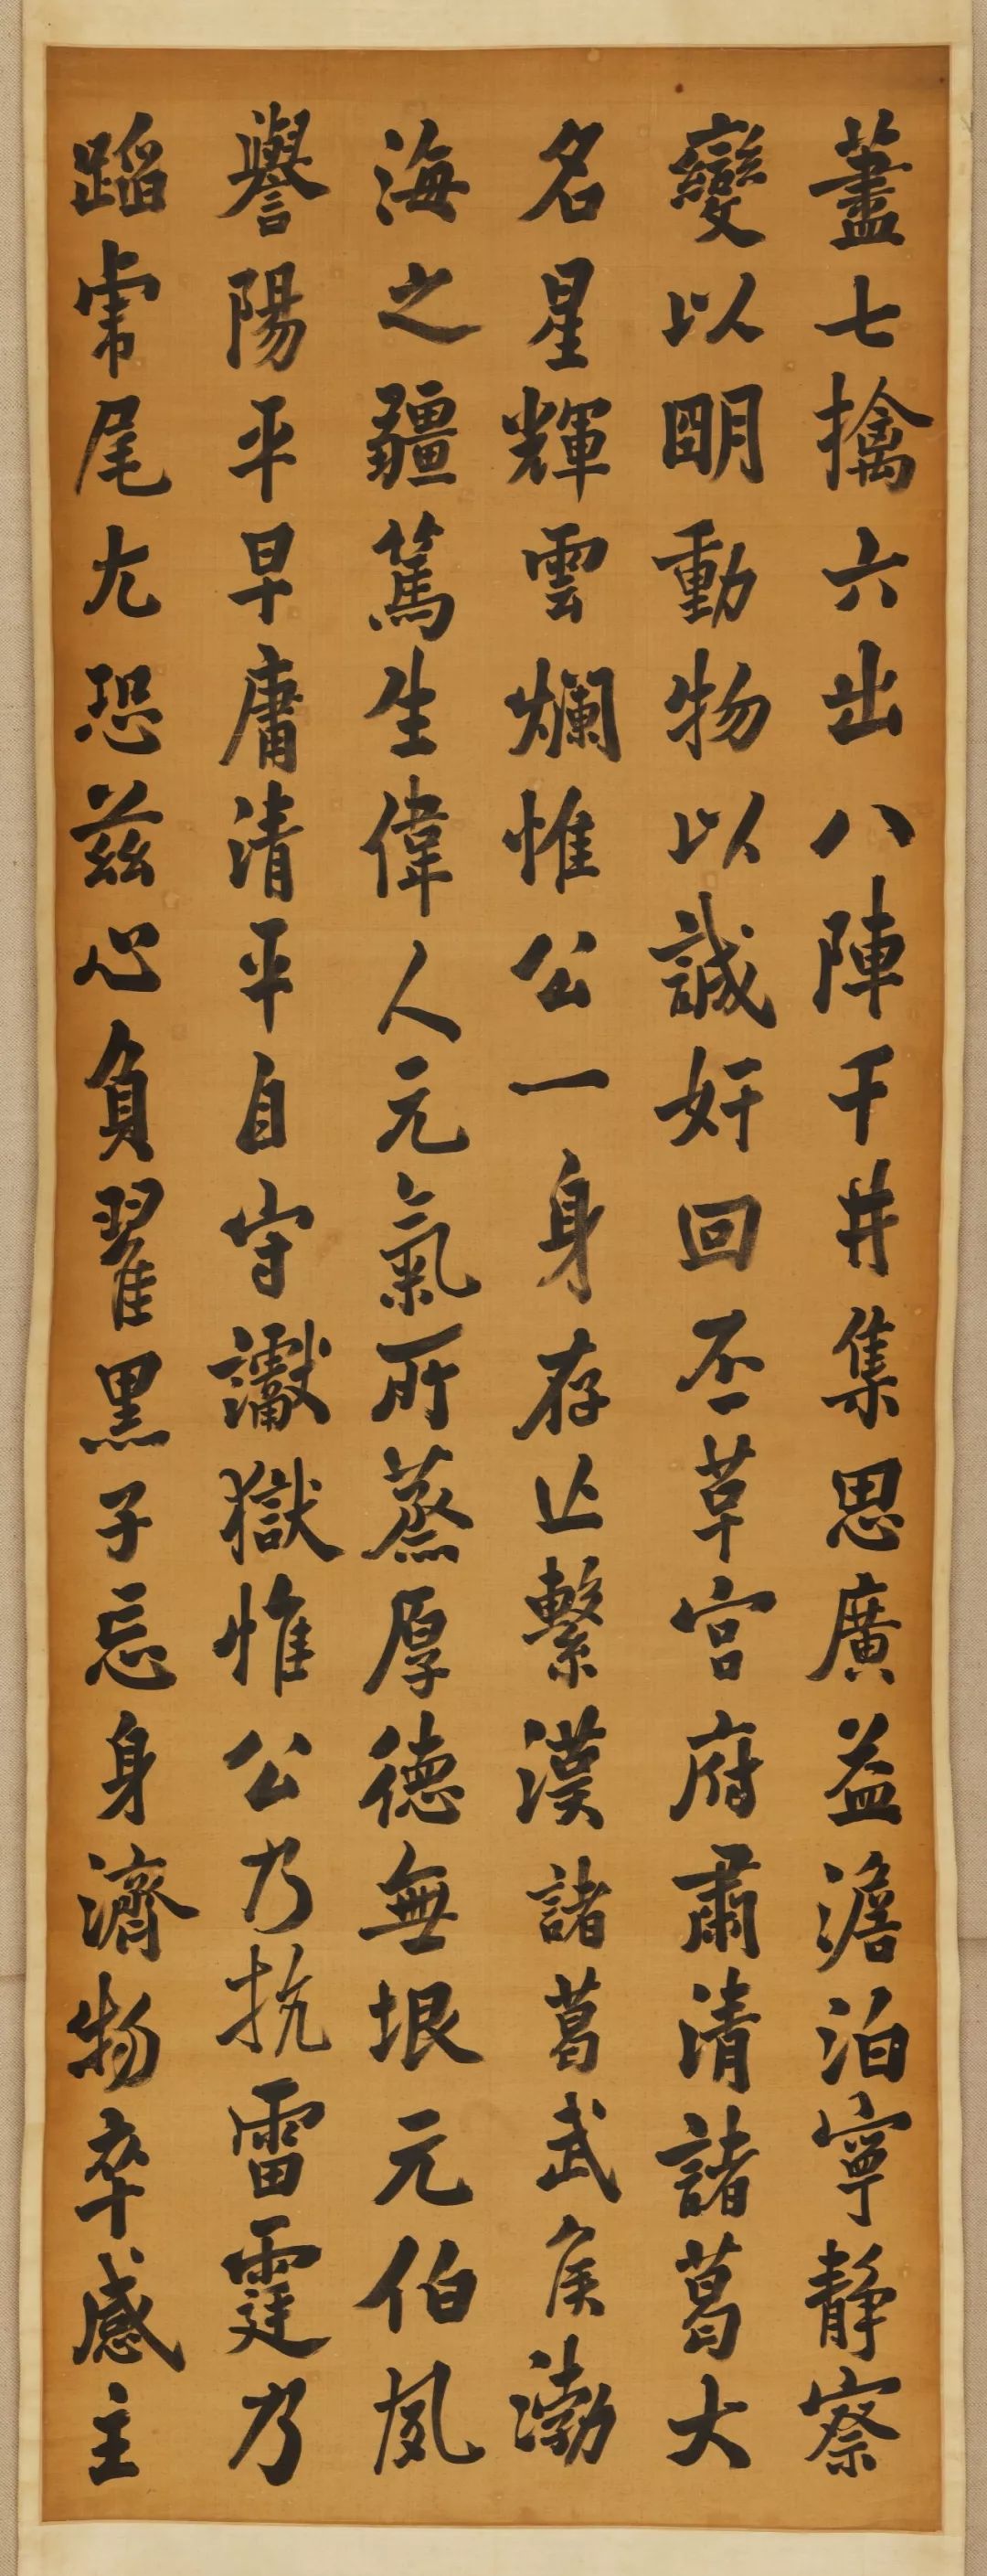 藎七擒六出八陣千井集思廣益澹泊寧靜察
變以明動物以誠奸回丕草宮府肅清諸葛大
名星輝雲爛惟公一身存亡繫漢諸葛武侯渤
海之疆篤生偉人元氣所蒸厚德無垠元伯夙
譽陽平早庸清平自守讞獄惟公乃抗雷霆乃
蹈虎尾尤恐茲心負翟黑子忘身濟物卒感主